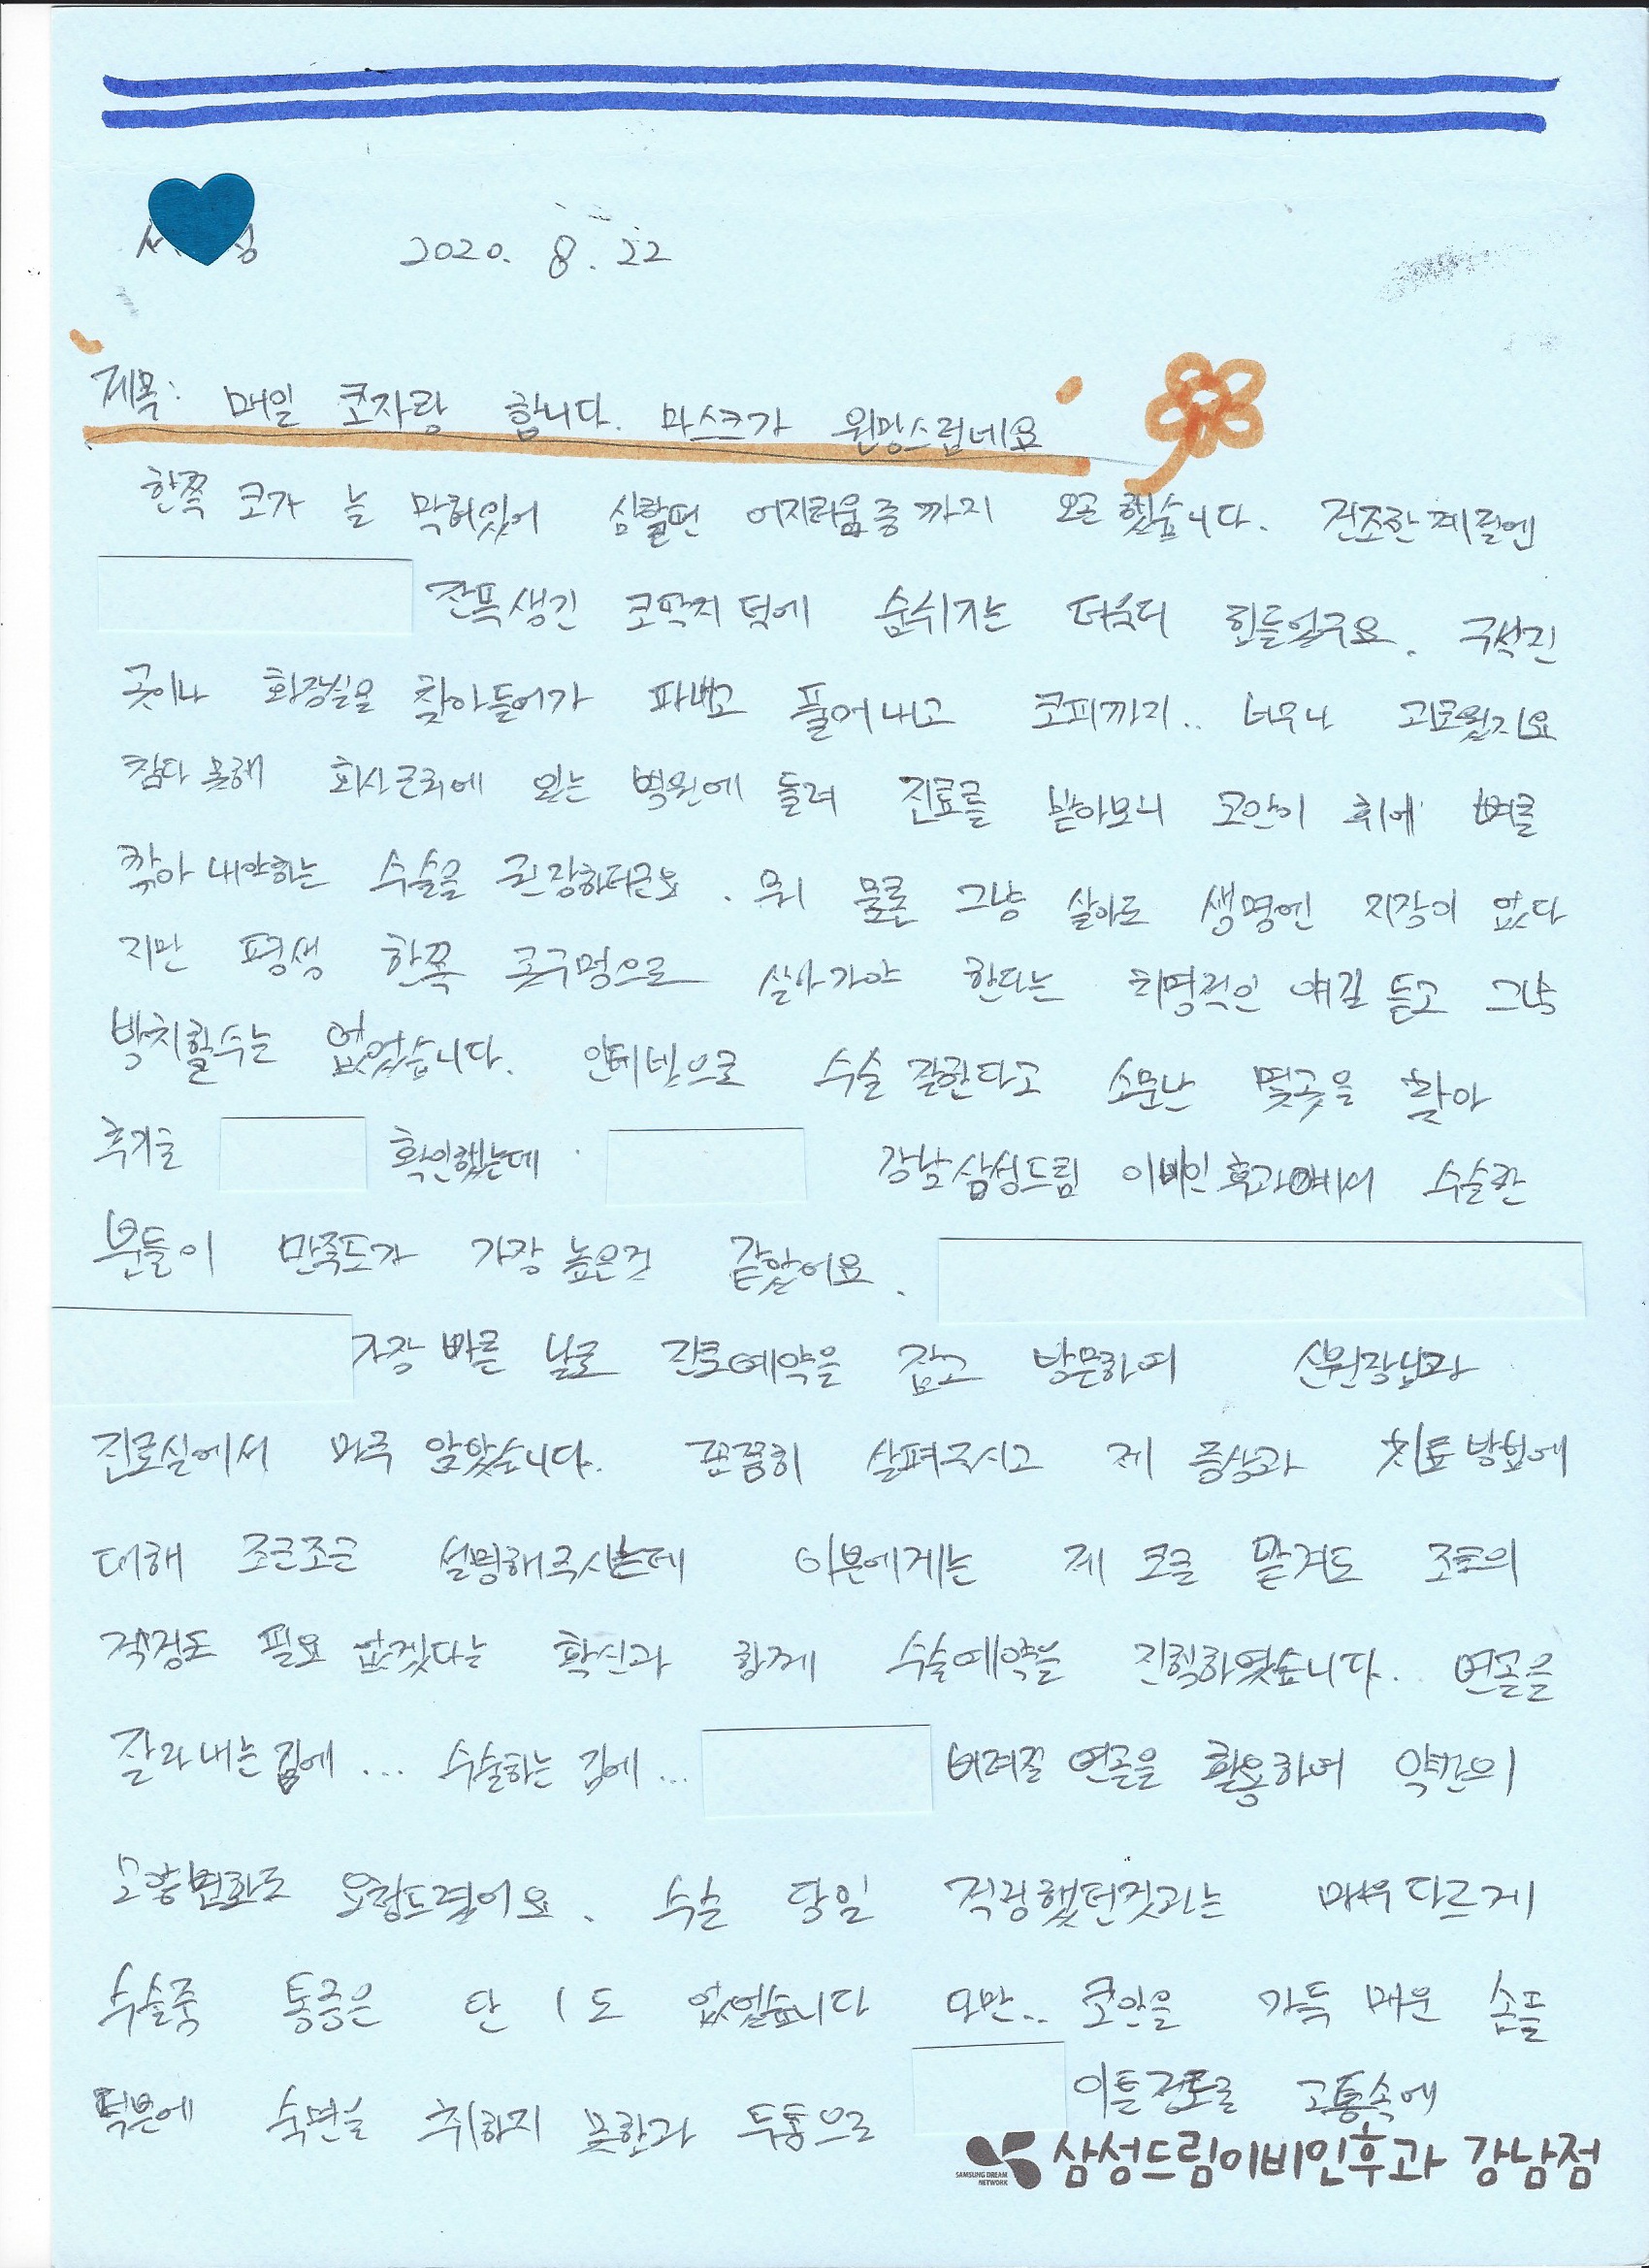 2020. 8. 22
제목: 매일 코자랑 합니다. 마스크가 원망스럽네요
한쪽 코가 늘 막혀있어 심할땐 어지러움증까지 오곤했습니다. 건조한계절엔
잔뜩생긴 코딱지덕에 숨쉬기는 더욱더 힘들었구요. 구석진
곳이나 화장실을 찾아들어가 파내고 풀어내고 코피까지.. 너무나 괴로웠지요
참다못해 회사근처에 있는 병원에 들려 진료를 받아보니 코안이 휘에 뼈를
깎아내야하는 수술을 권장하더군요. 뭐 물론 그냥 살아도 생명엔 지장이 없다
지만 평생 한쪽 콧구멍으로 살아가야 한다는 치명적인 얘길 듣고 그냥
방치할수는 없었습니다. 인터넷으로 수술 잘한다고 소문난 몇곳을 찾아
후기를 확인했는데 강남삼성드림 이비인후과에서 수술한
분들이 만족도가 가장 높은것 같았어요.
가장 빠른 날로 진료예약을 잡고 방문하여 신원장님과
진료실에서 마주 앉았습니다. 꼼꼼히 살펴주시고 제 증상과 치료방법에
대해 조근조근 설명해주시는데 이분에게는 제 코를 맡겨도 조금의
걱정도 필요없겠다는 확신과 함께 수술예약을 진행하였습니다. 연골을
잘라내는김에 ... 수술하는 김에 ... 버려질 연골을 활용하여 약간의
모양변화도 요청드렸어요. 수술 당일 걱정했던것과는 매우다르게
수술중 통증은 단 1도 없었습니다 다만... 코안을 가득 메운 솜들
덕분에 숙면을 취하지 못한과 두통으로 이틀정도를 고통속에
SAMSUNG DREAM NETWORK
삼성드림이비인후과 강남점